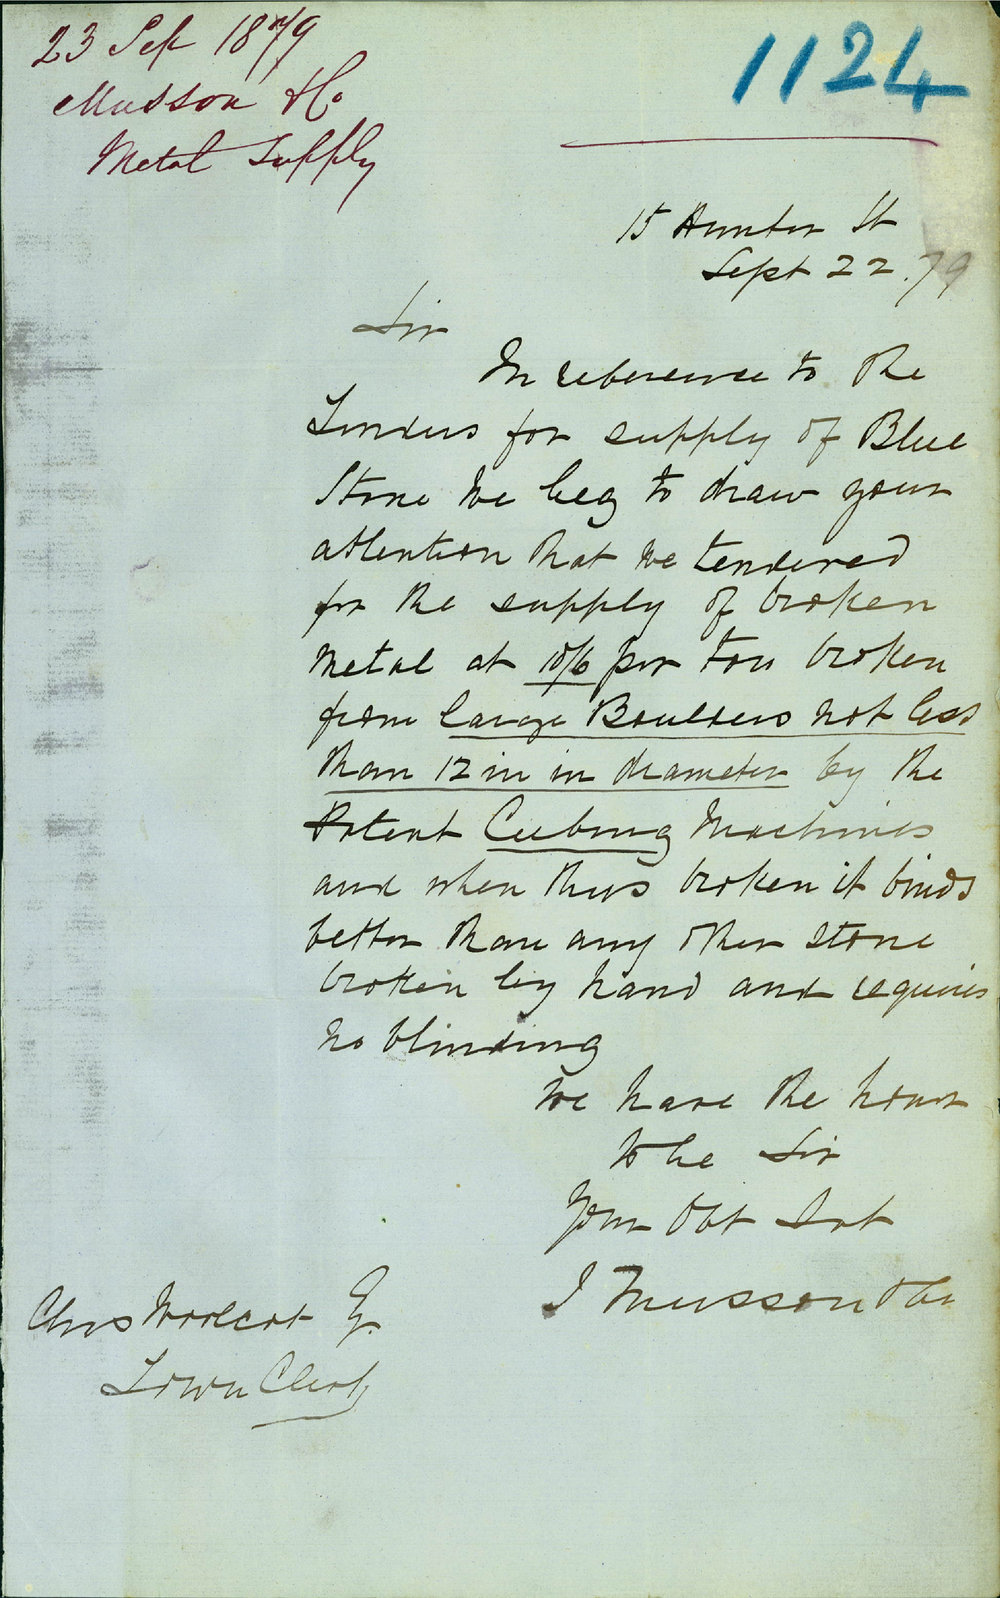 23 Sep 1879
Musson & Co
Metal Supply
1124
15 Hunter St
Sept 22. 79
Sir
In reference to the
Tenders for supply of Blue
Stone we beg to draw your
attention that we tendered
for the supply of broken
metal at 10/6 per ton broken
from large Boulders not less
than 12 in in diameter by the
Patent Cubing Machines
and when thus broken it binds
better than any other stone
broken by hand and requires
no blinding
We have the honor
to be Sir
Your Obt Svt
J Musson & Co
Chas Woolcott Eq.
Town Clerk